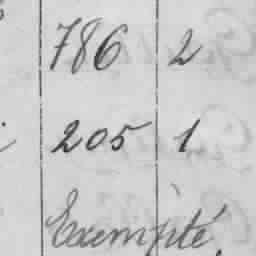 786 2
205 1
Exempté